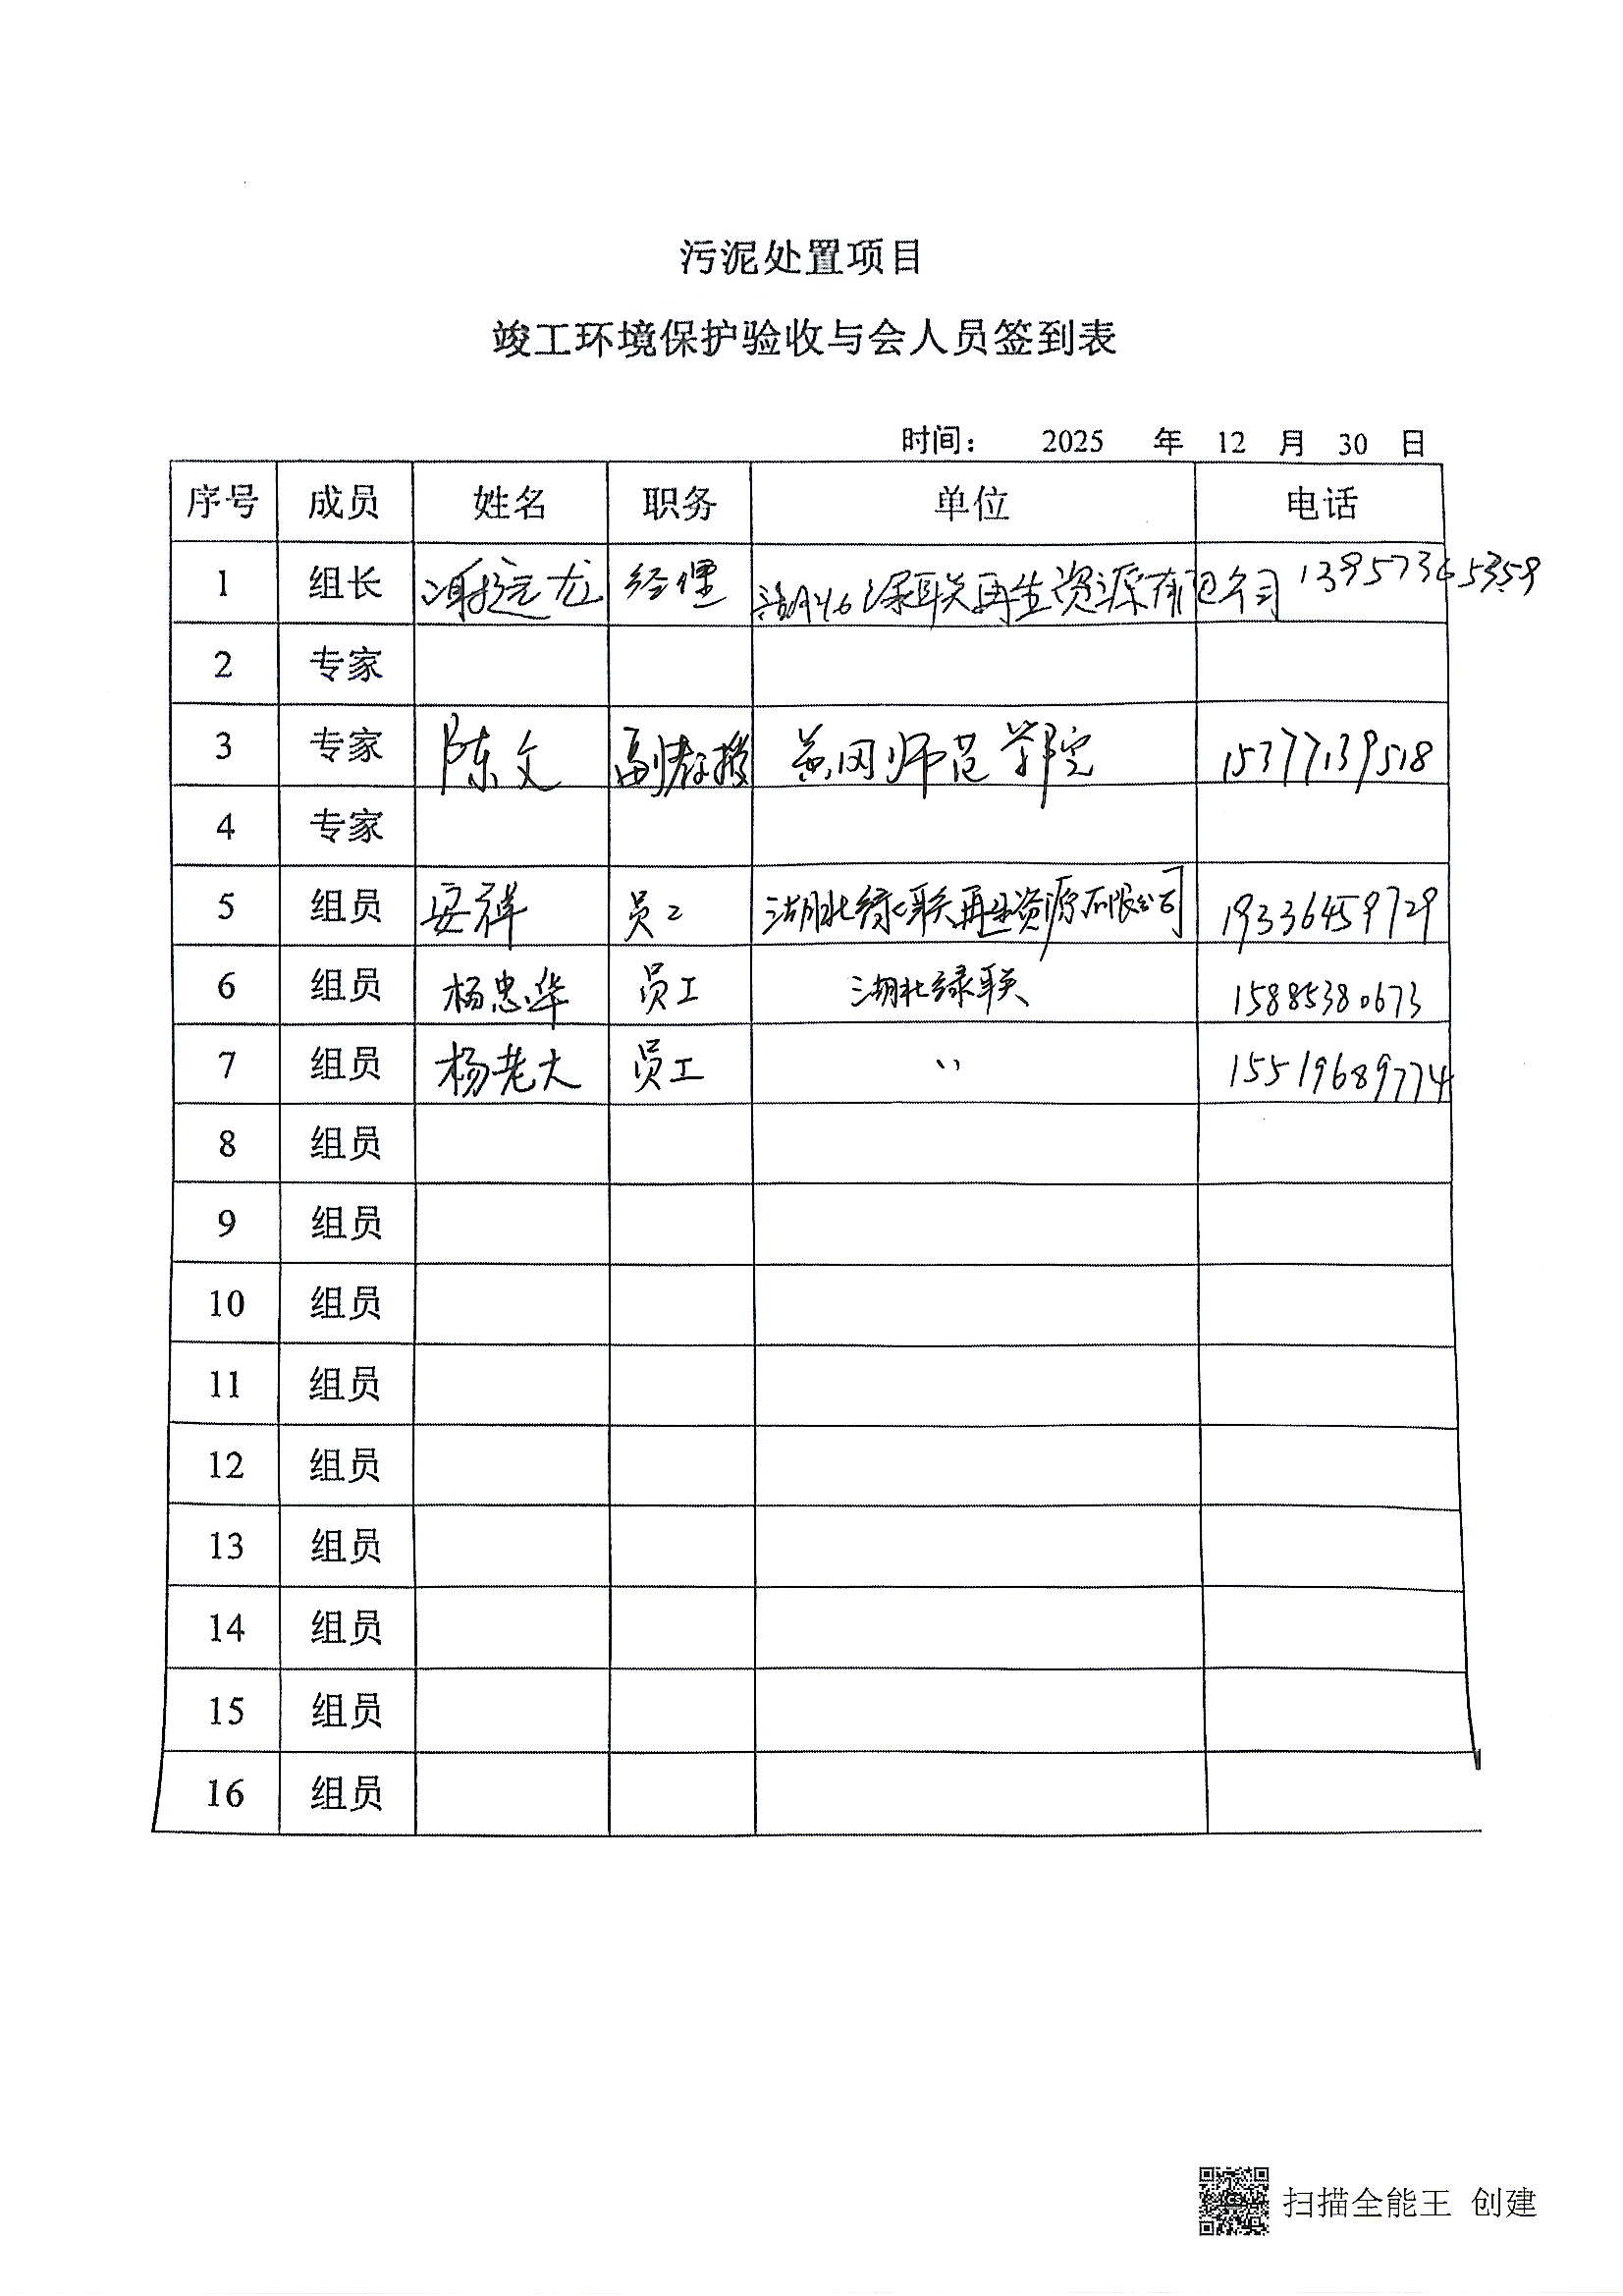 污泥处置项目
竣工环境保护验收与会人员签到表
时间： 2025 年 12 月 30 日
序号 成员 姓名 职务 单位 电话
1 组长 远龙 经理 湖北绿联再生资源有限公司
2 专家
3 专家 陈文 副教授 黄冈师范学院 15377139518
4 专家
5 组员 安祥 员工 湖北绿联再生资源有限公司 19336459729
6 组员 杨忠华 员工 湖北绿联 15885380673
7 组员 杨老大 员工 〃 15519689774
8 组员
9 组员
10 组员
11 组员
12 组员
13 组员
14 组员
15 组员
16 组员
扫描全能王 创建